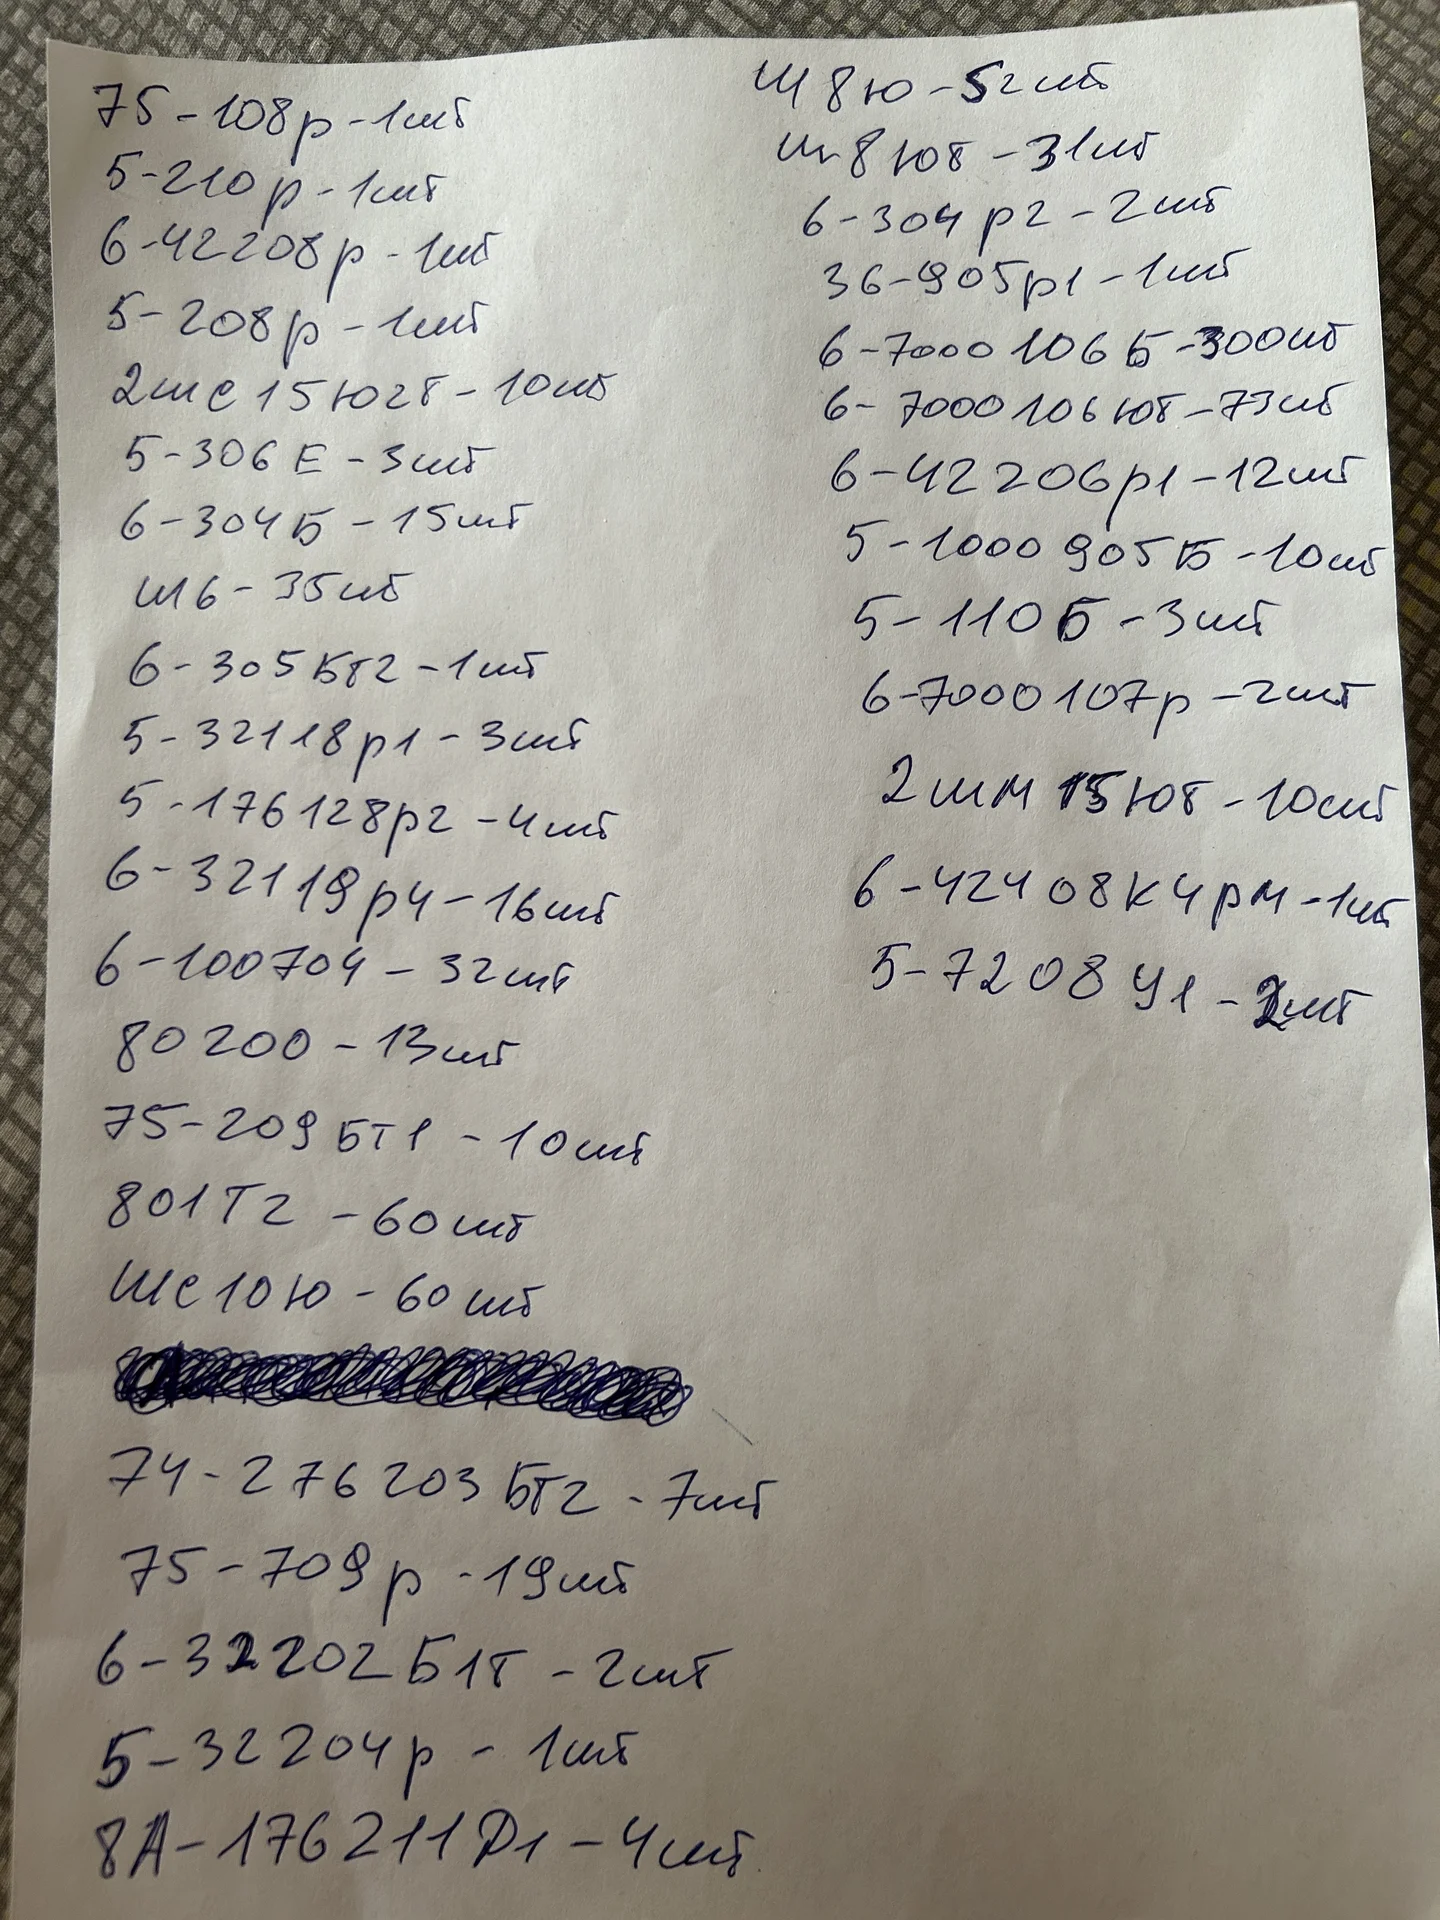 75-108р-1шт
5-210р-1шт
6-42208р-1шт
5-208р-1шт
2шс15ю2т-10шт
5-306Е-3шт
6-304Б-15шт
Ш6-35шт
6-305БТ2-1шт
5-32118р1-3шт
5-176128р2-4шт
6-32119р4-16шт
6-100704-32шт
80200-13шт
75-209БТ1-10шт
801Т2-60шт
Шс10ю-60шт
74-276203БТ2-7шт
75-709р-19шт
6-32202Б1Т-2шт
5-32204р-1шт
8А-176211Д1-4шт
Ш8ю-52шт
Ш8ЮТ-31шт
6-304р2-2шт
36-905р1-1шт
6-7000106Б-300шт
6-7000106ЮТ-73шт
6-42206р1-12шт
5-1000905Б-10шт
5-110Б-3шт
6-7000107р-2шт
2шм15ЮТ-10шт
6-42408К4рм-1шт
5-7208У1-2шт